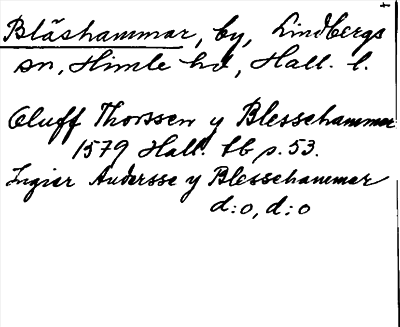 Blåshammar, by, Lindbergs
sn, Himle hd, Hall. l.
Oluff Thorssen y Blessehammer
1579 Hall. lb p. 53.
Ingier Andersse y Blessehammar
d:o, d:o